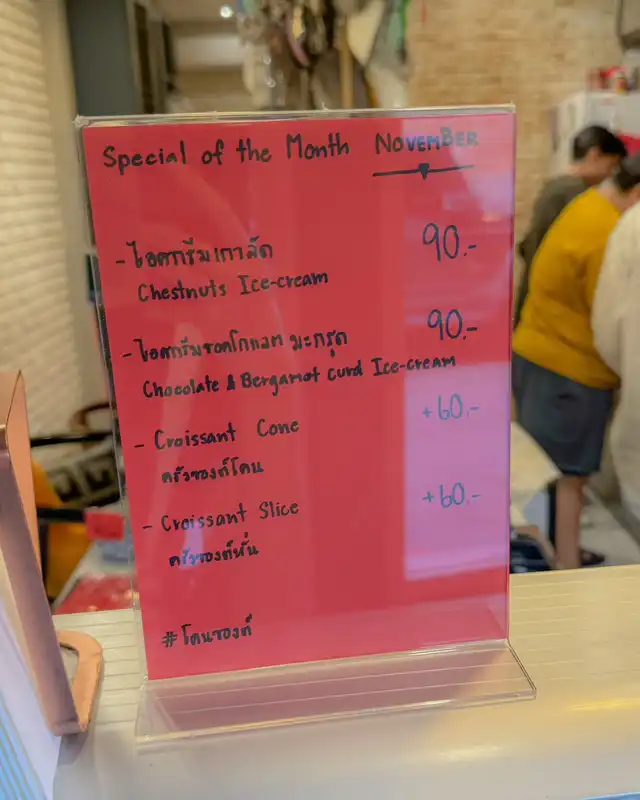 Special of the Month NOVEMBER
- ไอศกรีมเกาลัด 90.-
Chestnuts Ice-cream
- ไอศกรีมชอคโกแลต มะกรูด 90.-
Chocolate & Bergamot curd Ice-cream
- Croissant Cone +60.-
ครัวซองต์โคน
- Croissant Slice +60.-
ครัวซองต์หั่น
#โคนซองต์